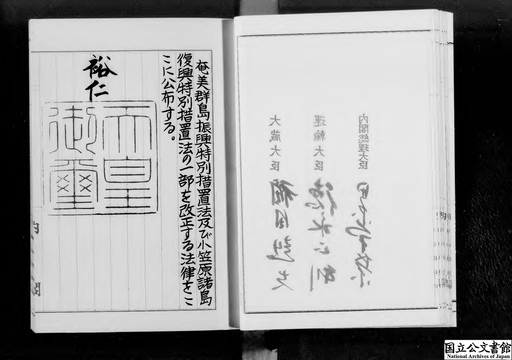 奄美群島振興特別措置法及び小笠原諸島
復興特別措置法の一部を改正する法律をこ
こに公布する。
裕仁
天皇
御璽
内閣
内閣総理大臣
運輸大臣
大蔵大臣
国立公文書館
National Archives of Japan